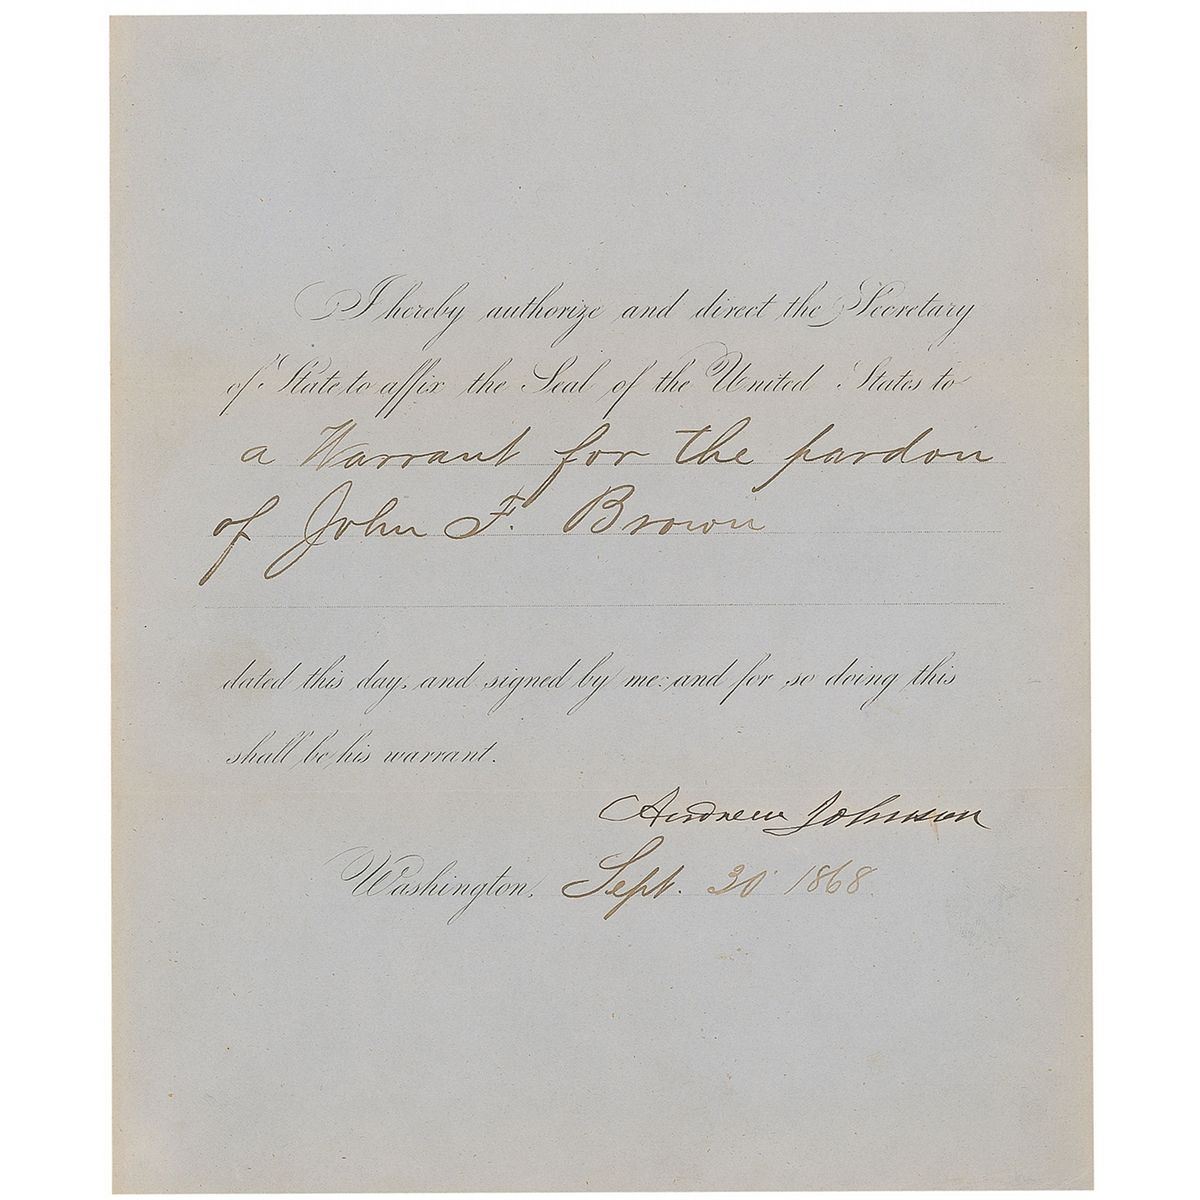 I hereby authorize and direct the Secretary
of State to affix the Seal of the United States to
a Warrant for the pardon
of John F. Brown
dated this day, and signed by me: and for so doing this
shall be his warrant.
Andrew Johnson
Washington, Sept. 30 1868.